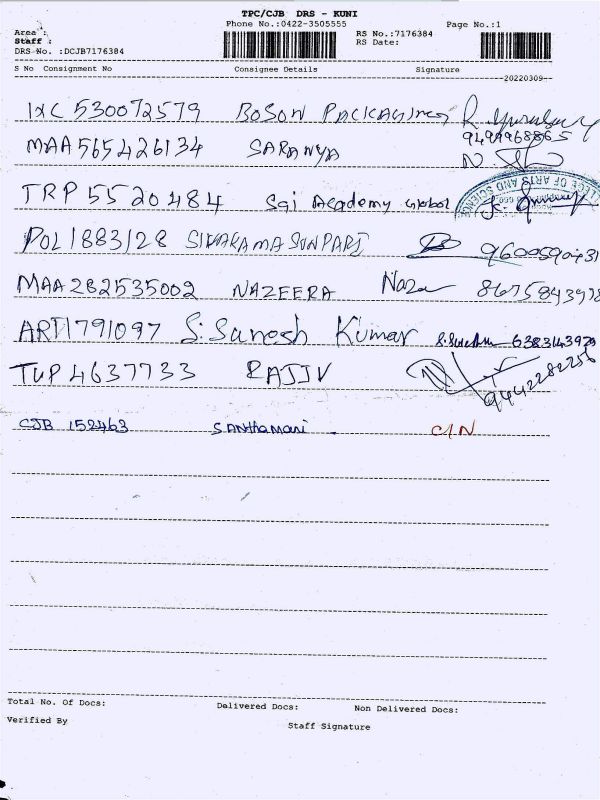 TPC/CJB DRS - KUNI
Phone No.:0422-3505555 Page No.:1
Area :
Staff : RS No.:7176384
DRS No. :DCJB7176384 RS Date:
S No Consignment No Consignee Details Signature
20220309
IXC 530072579 BOSON PACKAGINGS
9499968865
MAA 565426134 SARANYA
TRP 5520484 Sai Academy Global
LEGE OF ARTS AND SCIENCE
POL 1883128 SIVAKAMASUNPARI 9600590431
MAA 282535002 NAZEERA Naze 8675843978
ART1791097 S. Suresh Kumar 6383143970
TUP 4637733 RAJIV 9442282256
CJB 152463 SANthamani . C/N
Total No. Of Docs: Delivered Docs: Non Delivered Docs:
Verified By Staff Signature